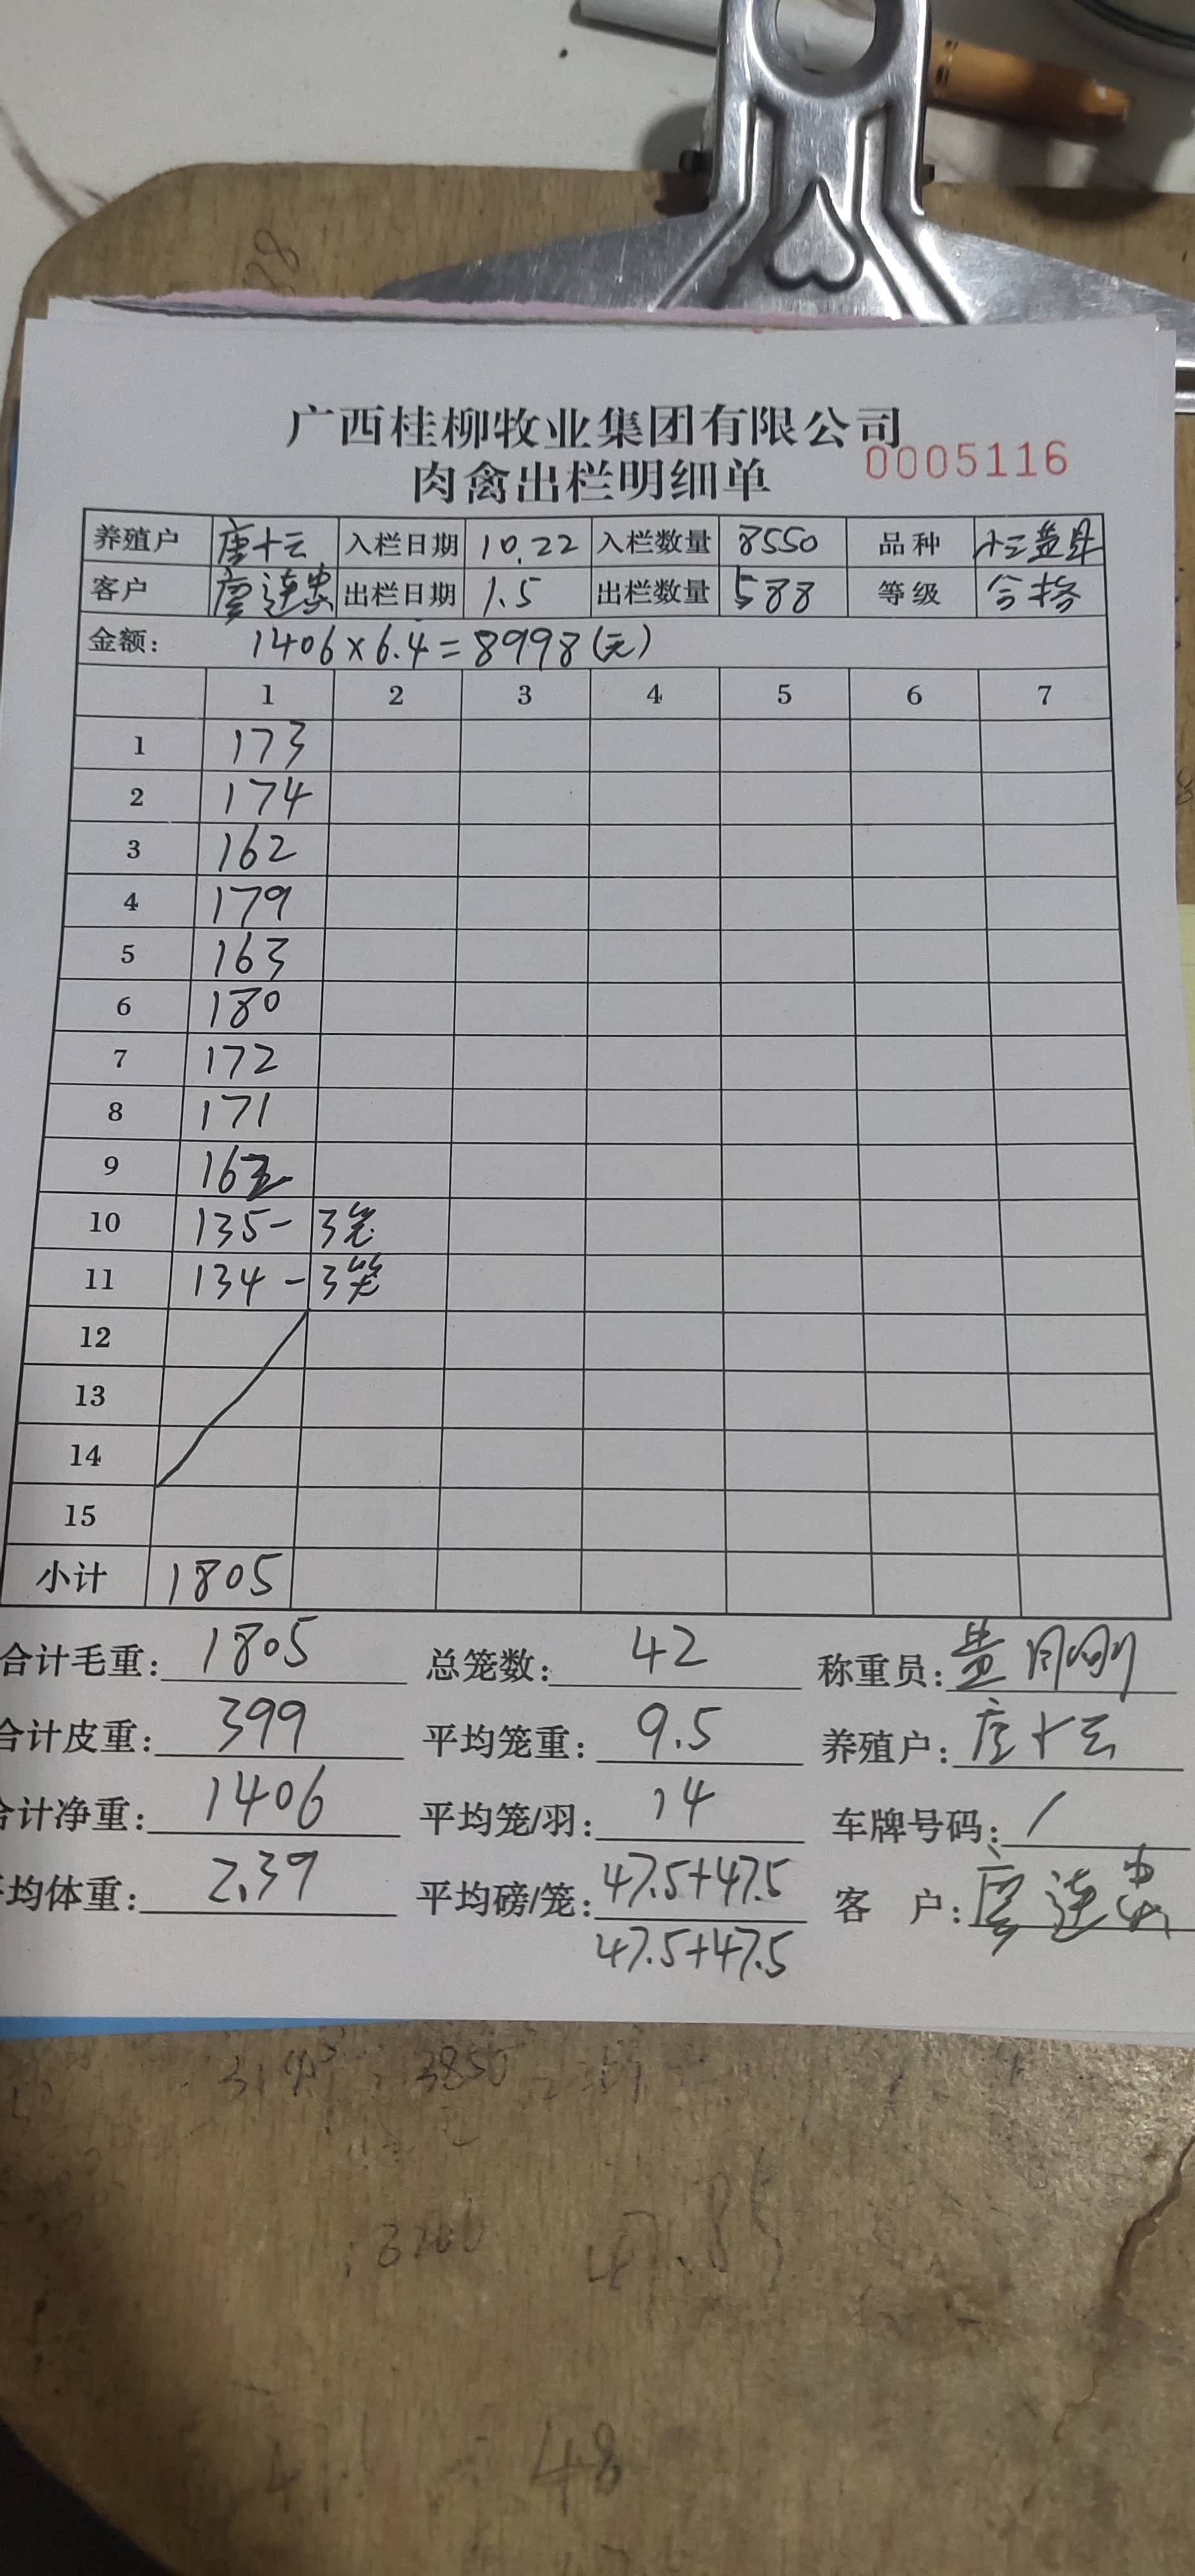 广西桂柳牧业集团有限公司
肉禽出栏明细单 0005116
养殖户 唐十云 入栏日期 10.22 入栏数量 8550 品种
客户 出栏日期 1.5 出栏数量 588 等级 合格
金额: 1406×6.4=8998(元)
1 2 3 4 5 6 7
1 173
2 174
3 162
4 179
5 163
6 180
7 172
8 171
9
10 135-3笼
11 134-3笼
12
13
14
15
小计 1805
合计毛重: 1805 总笼数: 42 称重员:
合计皮重: 399 平均笼重: 9.5 养殖户: 唐十云
合计净重: 1406 平均笼/羽: 14 车牌号码: /
均体重: 2.39 平均磅/笼: 47.5+47.5 客户:
47.5+47.5
3850
48